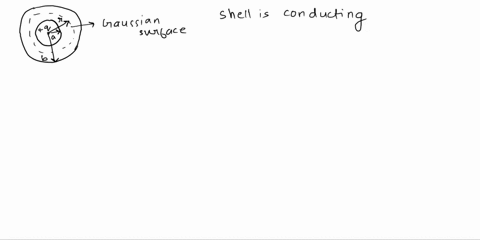 Gaussian
surface
shell is conducting
+q
r
a
b